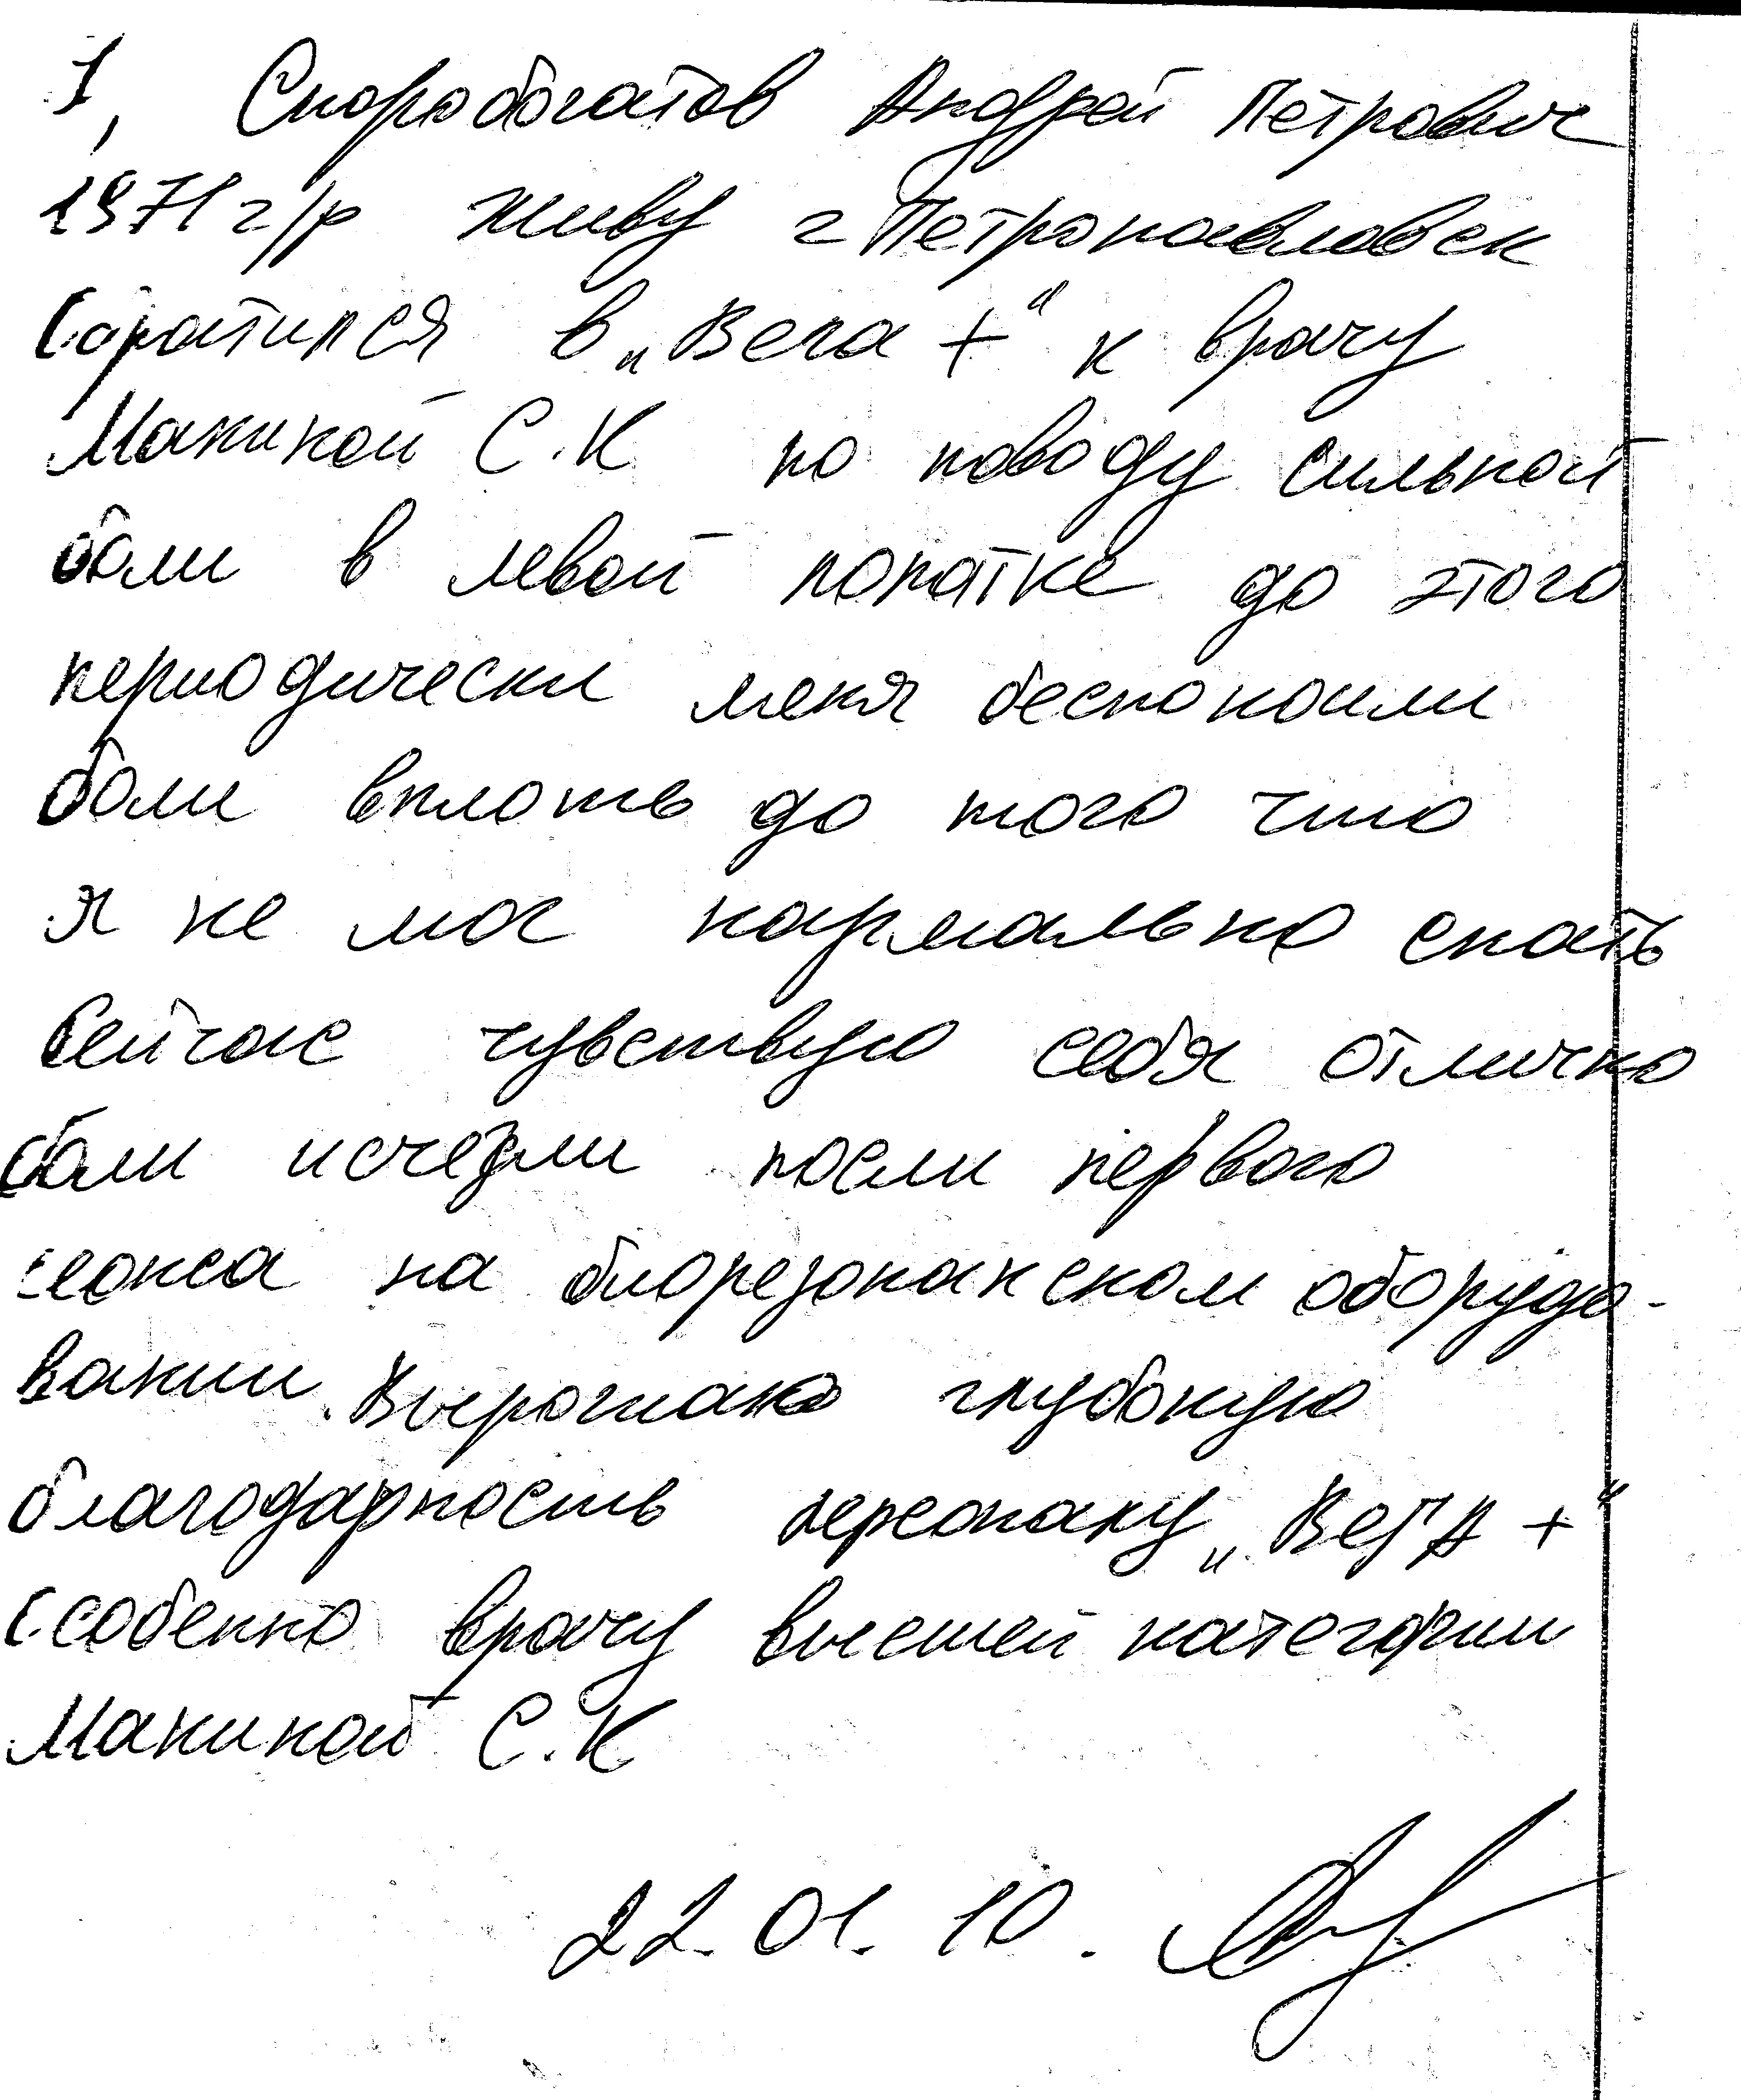 Я, Скоробогатов Андрей Петрович
1971 г/р живу г Петропавловск
обратился в „Вега +“ к врачу
Макиной С.К по поводу сильной
боли в левой лопатке до этого
периодически меня беспокоили
боли вплоть до того что
я не мог нормально спать
Сейчас чувствую себя отлично
боли исчезли посли первого
сеонса на биорезонанском оборудо-
вании. Выражаю глубокую
благодарность персоналу „ВегА +“
особенно врачу высшей категории
Макиной С.К
22.01.10.